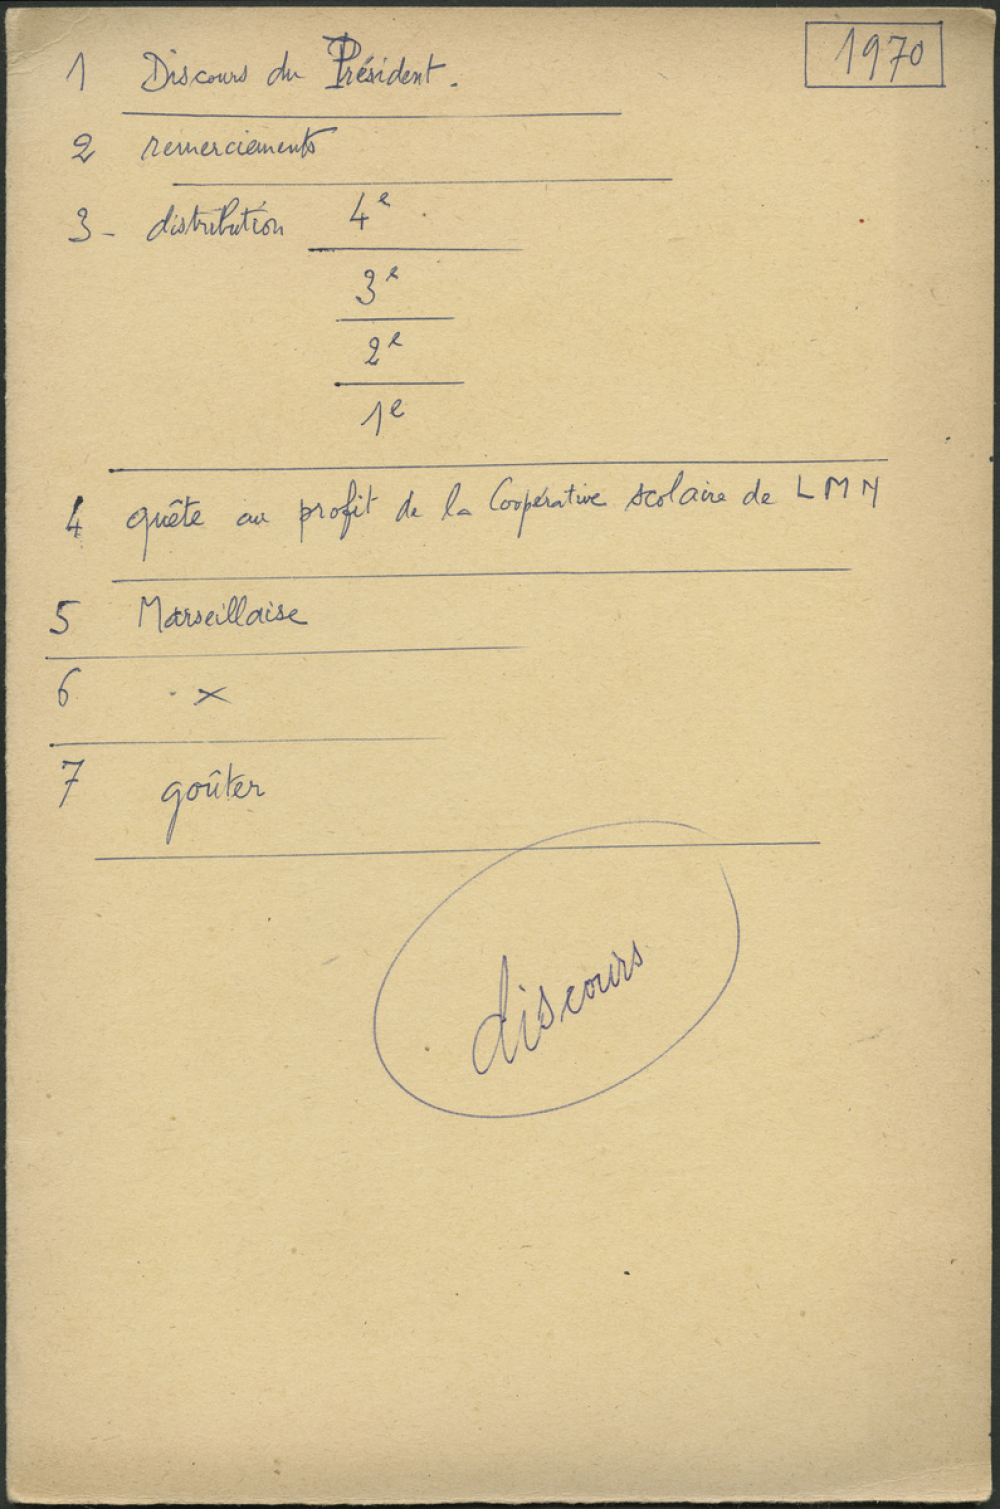 1970
1 Discours du Président.
2 remerciements
3- distribution 4e
3e
2e
1e
4 quête au profit de la Coopérative scolaire de LMN
5 Marseillaise
6 x
7 goûter
discours